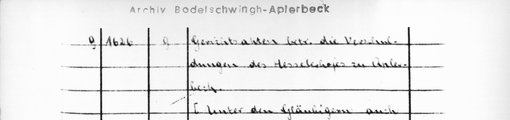 Archiv Bodelschwingh-Aplerbeck
g 1626 g Gerichtsakten betr. die Verschul-
dungen des Hesselehofes zu Apler-
beck.
[ Unter den Gläubigern auch